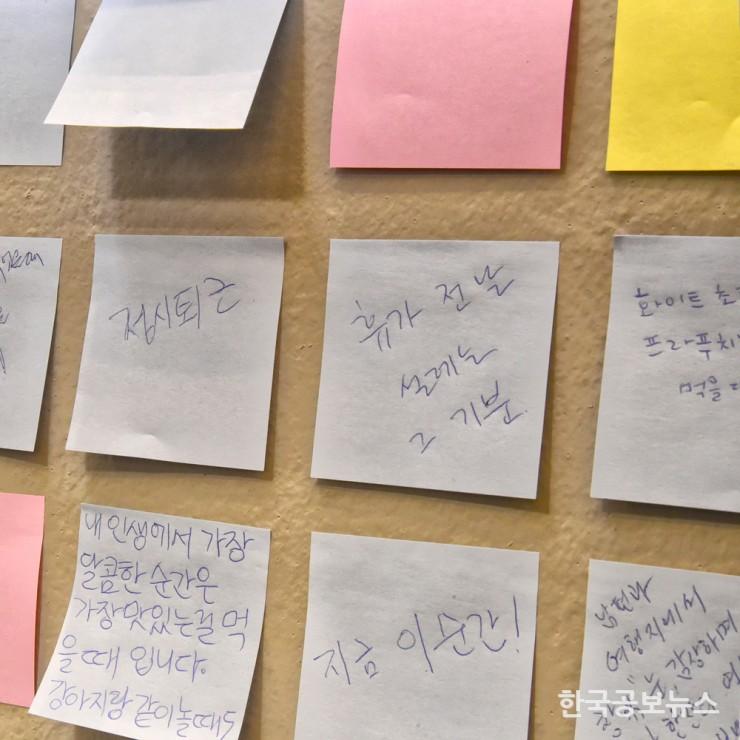 정시퇴근
휴가 전 날
설레는
그 기분
화이트 초
프라푸치
먹을 때
내 인생에서 가장
달콤한 순간은
가장 맛있는걸 먹
을때 입니다.
강아지랑 같이 놀때도
지금 이 순간!
남편과
여행지에서
한국공보뉴스